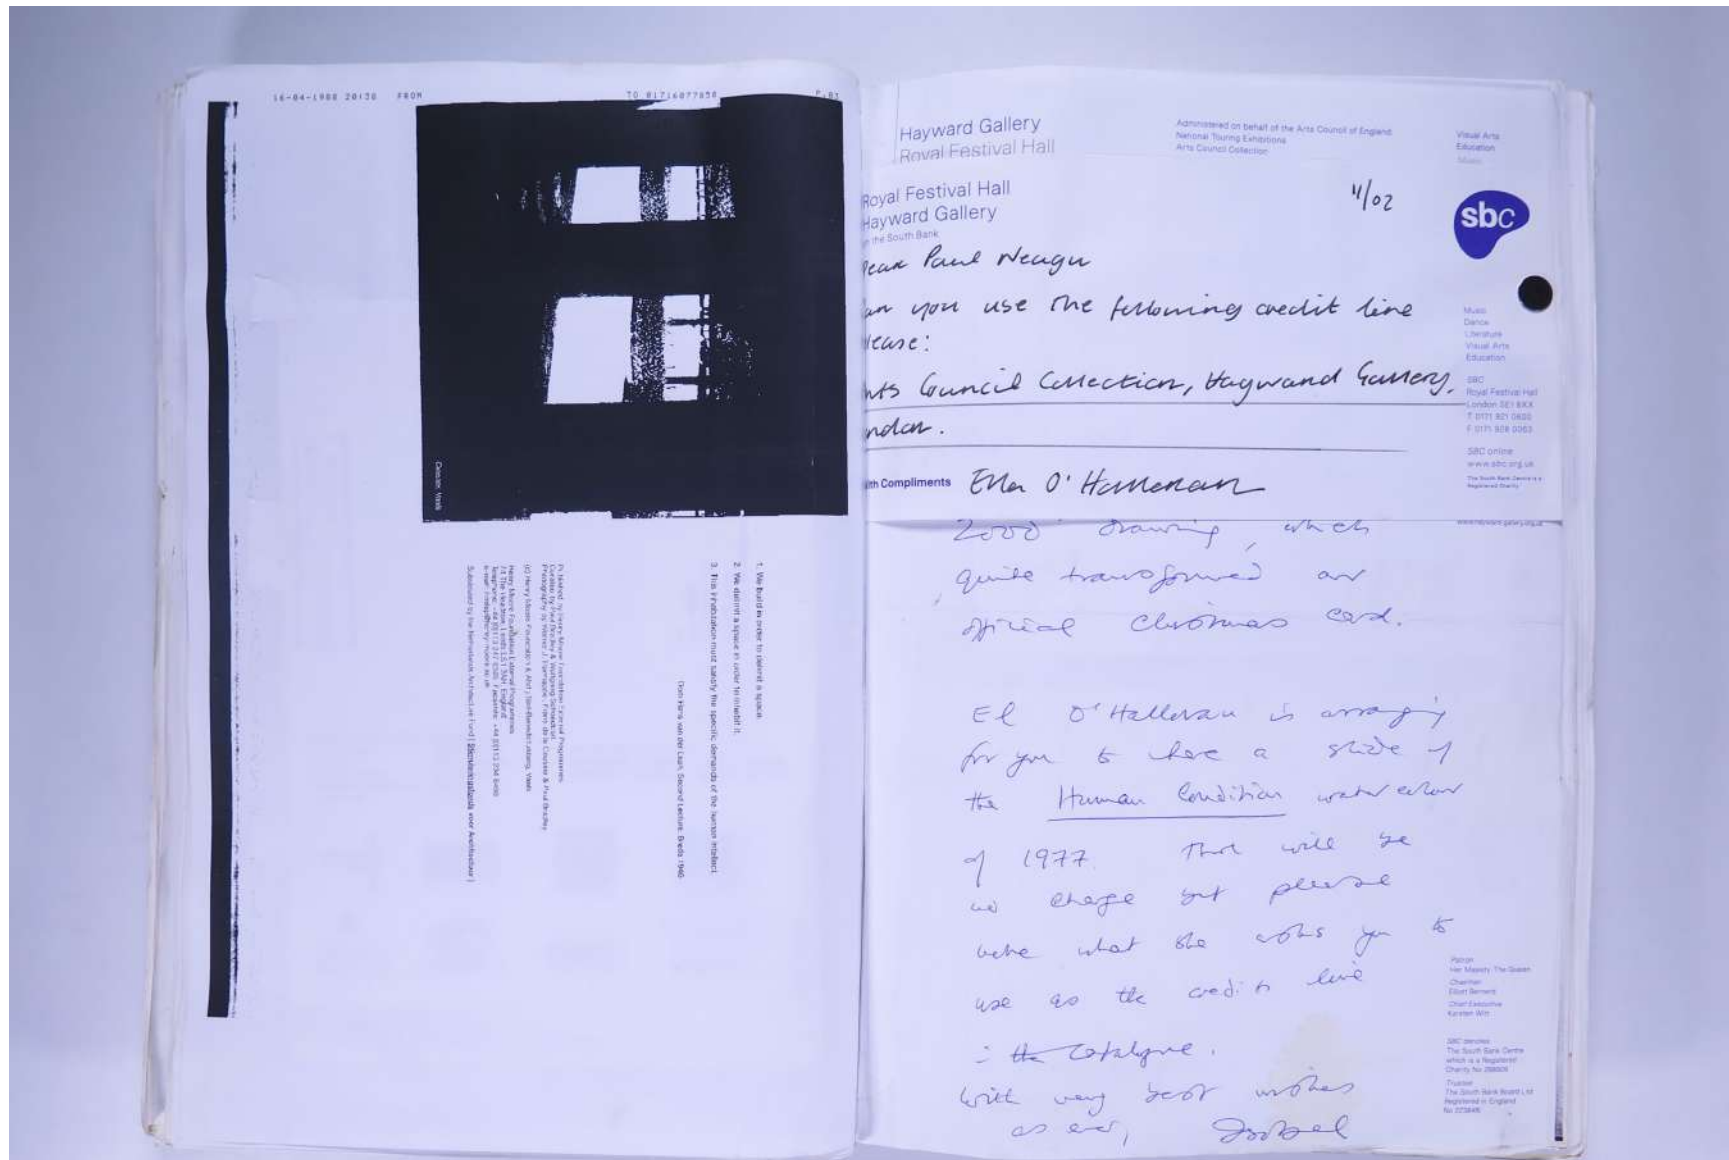 16-04-1988 20:30 FROM TO 01716077858 P.03
1. We build in order to delimit a space.
2. We delimit a space in order to inhabit it.
3. This inhabitation must satisfy the specific demands of the human intellect.
Dom Hans van der Laan, Second Lecture, Breda 1946
Published by Henry Moore Foundation External Programmes
Curated by Paul Bradley &
Photography by & Paul Bradley
(c) Henry Moore Foundation & Vaals
Henry Moore Foundation External Programmes
74 The Headrow, Leeds LS1 3AH, England
Subsidised by the Netherlands Architecture Fund | Stimuleringsfonds voor Architectuur |
Hayward Gallery
Royal Festival Hall
Administered on behalf of the Arts Council of England
National Touring Exhibitions
Arts Council Collection
Visual Arts
Education
Music
Royal Festival Hall
Hayward Gallery
on the South Bank
11/02
sbc
Dear Paul Neagu
Can you use the following credit line
please:
Arts Council Collection, Hayward Gallery,
London.
With Compliments
Ella O'Halloran
Music
Dance
Literature
Visual Arts
Education
SBC
Royal Festival Hall
London SE1 8XX
T 0171 921 0600
F 0171 928 0063
SBC online
www.sbc.org.uk
The South Bank Centre is a
Registered Charity
www.hayward-gallery.org.uk
2000 drawing, which
quite transformed an
official Christmas card.
El O'Halloran is arranging
for you to have a slide of
the Human Condition watercolour
of 1977. That will be
no charge but please
note what she asks you to
use as the credit line
in the catalogue.
With very best wishes
as ever, Isobel
Patron
Her Majesty The Queen
Chairman
Elliott Bernerd
Chief Executive
Karsten Witt
SBC denotes
The South Bank Centre
which is a Registered
Charity No 298909
Trustee
The South Bank Board Ltd
Registered in England